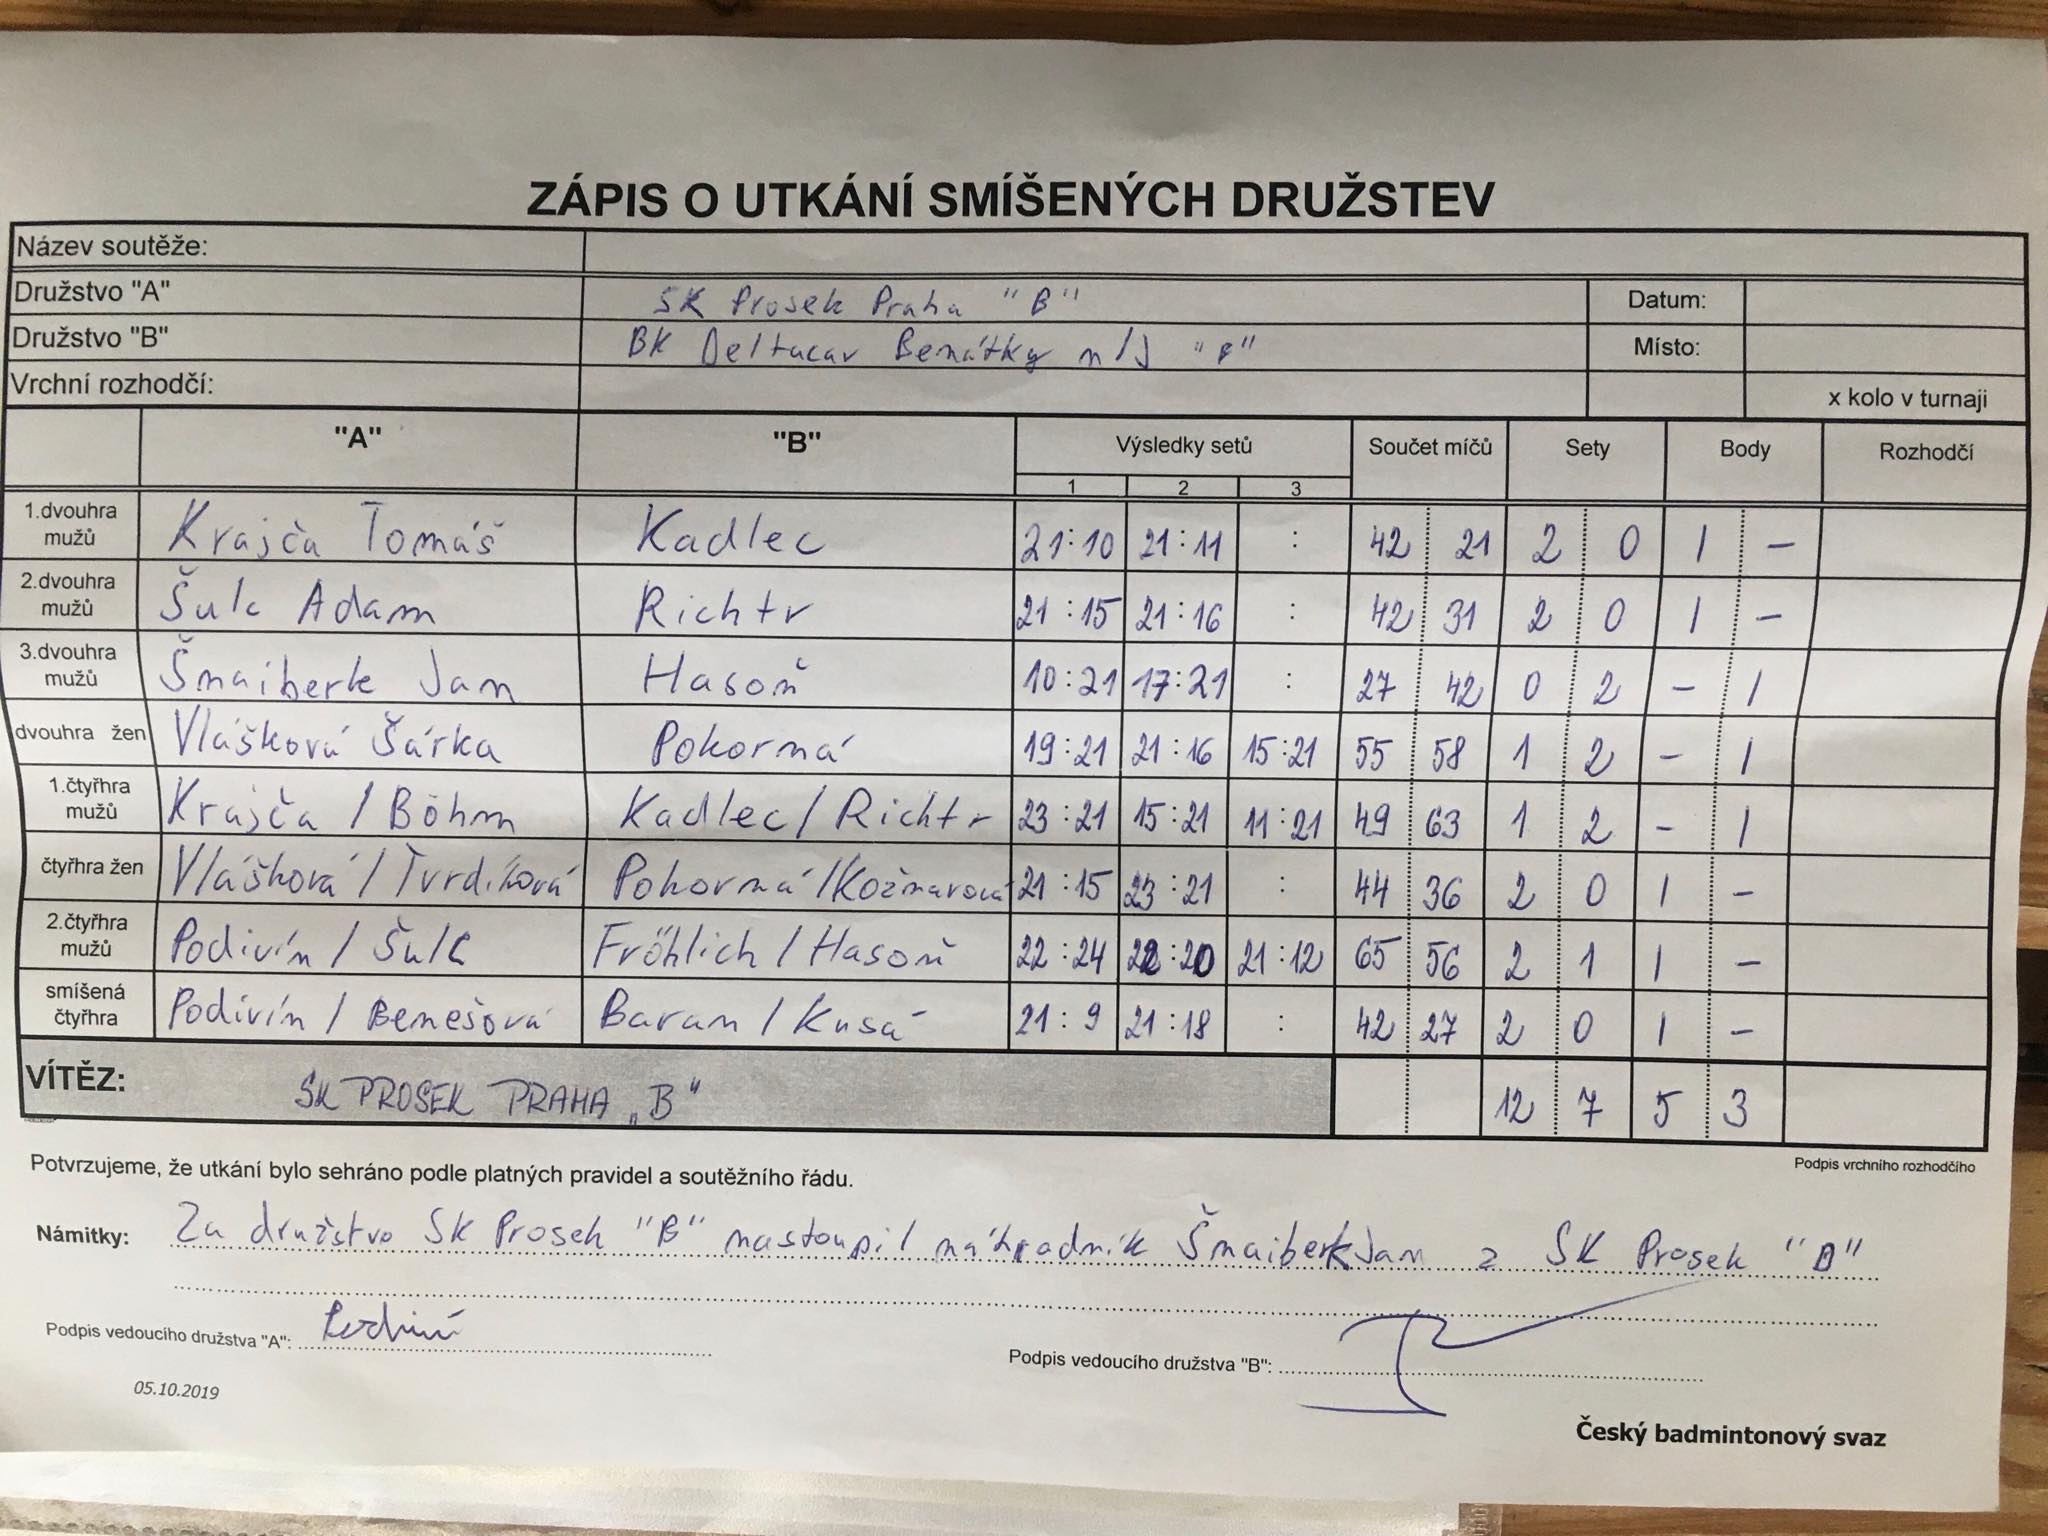 ZÁPIS O UTKÁNÍ SMÍŠENÝCH DRUŽSTEV
Název soutěže:
Družstvo "A" SK Prosek Praha "B" Datum:
Družstvo "B" BK Deltacar Benátky n/J Místo:
Vrchní rozhodčí: x kolo v turnaji
"A" "B" Výsledky setů Součet míčů Sety Body Rozhodčí
1 2 3
1.dvouhra mužů Krajča Tomáš Kadlec 21:10 21:11 : 42 21 2 0 1 -
2.dvouhra mužů Šulc Adam Richtr 21:15 21:16 : 42 31 2 0 1 -
3.dvouhra mužů Šmaiberk Jan Hasoň 10:21 17:21 : 27 42 0 2 - 1
dvouhra žen Vlášková Šárka Pokorná 19:21 21:16 15:21 55 58 1 2 - 1
1.čtyřhra mužů Krajča / Böhm Kadlec / Richtr 23:21 15:21 11:21 49 63 1 2 - 1
čtyřhra žen Vlášková / Tvrdíková Pokorná / Kožnarová 21:15 23:21 : 44 36 2 0 1 -
2.čtyřhra mužů Podivín / Šulc Fröhlich / Hasoň 22:24 22:20 21:12 65 56 2 1 1 -
smíšená čtyřhra Podivín / Benešová Baran / Kusá 21:9 21:18 : 42 27 2 0 1 -
VÍTĚZ: SK PROSEK PRAHA „B" 12 7 5 3
Potvrzujeme, že utkání bylo sehráno podle platných pravidel a soutěžního řádu. Podpis vrchního rozhodčího
Námitky: Za družstvo SK Prosek "B" nastoupil náhradník Šmaiberk Jan z SK Prosek "D"
Podpis vedoucího družstva "A": Podivín
Podpis vedoucího družstva "B":
05.10.2019
Český badmintonový svaz